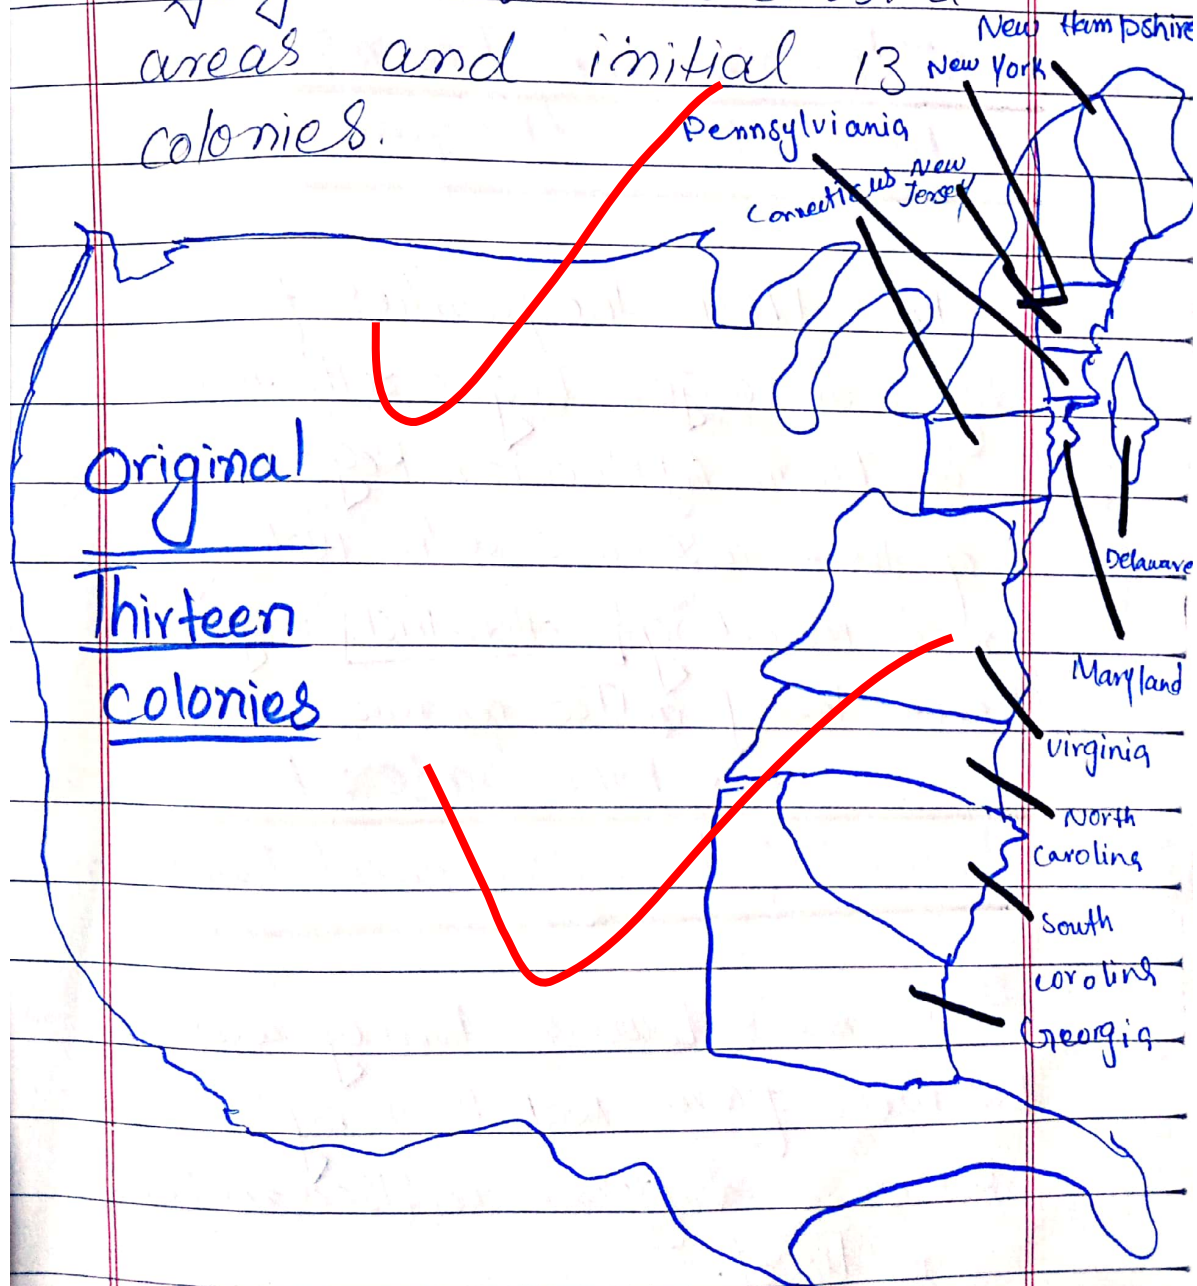 areas and initial 13
colonies.
New Hampshire
New York
Pennsylviania
Connecticus
New
Jersey
Original
Thirteen
colonies
Delaware
Maryland
virginia
North
carolina
South
corolina
Georgia